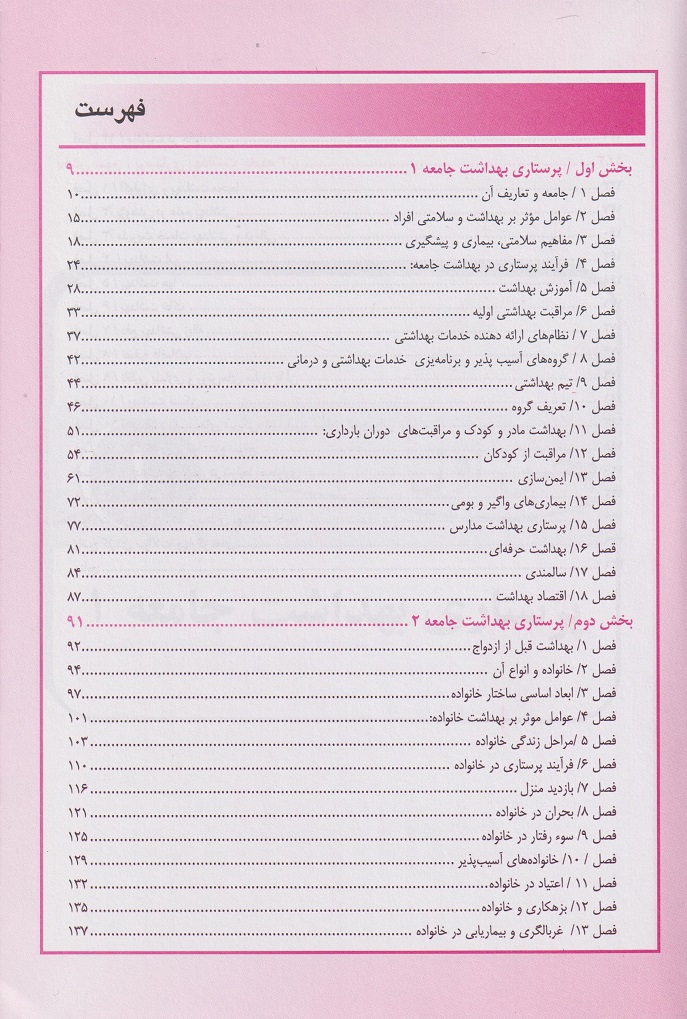 فهرست
بخش اول / پرستاری بهداشت جامعه ۱ ........ ۹
فصل ۱ / جامعه و تعاریف آن ........ ۱۰
فصل ۲/ عوامل مؤثر بر بهداشت و سلامتی افراد ........ ۱۵
فصل ۳/ مفاهیم سلامتی، بیماری و پیشگیری ........ ۱۸
فصل ۴/ فرآیند پرستاری در بهداشت جامعه: ........ ۲۴
فصل ۵/ آموزش بهداشت ........ ۲۸
فصل ۶/ مراقبت بهداشتی اولیه ........ ۳۳
فصل ۷ / نظام‌های ارائه دهنده خدمات بهداشتی ........ ۳۷
فصل ۸ / گروه‌های آسیب پذیر و برنامه‌یزی خدمات بهداشتی و درمانی ........ ۴۲
فصل ۹/ تیم بهداشتی ........ ۴۴
فصل ۱۰/ تعریف گروه ........ ۴۶
فصل ۱۱/ بهداشت مادر و کودک و مراقبت‌های دوران بارداری: ........ ۵۱
فصل ۱۲/ مراقبت از کودکان ........ ۵۴
فصل ۱۳/ ایمن‌سازی ........ ۶۱
فصل ۱۴/ بیماری‌های واگیر و بومی ........ ۷۲
فصل ۱۵/ پرستاری بهداشت مدارس ........ ۷۷
قصل ۱۶/ بهداشت حرفه‌ای ........ ۸۱
فصل ۱۷/ سالمندی ........ ۸۴
فصل ۱۸/ اقتصاد بهداشت ........ ۸۷
بخش دوم/ پرستاری بهداشت جامعه ۲ ........ ۹۱
فصل ۱/ بهداشت قبل از ازدواج ........ ۹۲
فصل ۲/ خانواده و انواع آن ........ ۹۴
فصل ۳/ ابعاد اساسی ساختار خانواده ........ ۹۷
فصل ۴/ عوامل موثر بر بهداشت خانواده: ........ ۱۰۱
فصل ۵ /مراحل زندگی خانواده ........ ۱۰۳
فصل ۶/ فرآیند پرستاری در خانواده ........ ۱۱۰
فصل ۷/ بازدید منزل ........ ۱۱۶
فصل ۸/ بحران در خانواده ........ ۱۲۱
فصل ۹/ سوء رفتار در خانواده ........ ۱۲۵
فصل / ۱۰/ خانواده‌های آسیب‌پذیر ........ ۱۲۹
فصل ۱۱ / اعتیاد در خانواده ........ ۱۳۲
فصل ۱۲/ بزهکاری و خانواده ........ ۱۳۵
فصل ۱۳/ غربالگری و بیماریابی در خانواده ........ ۱۳۷